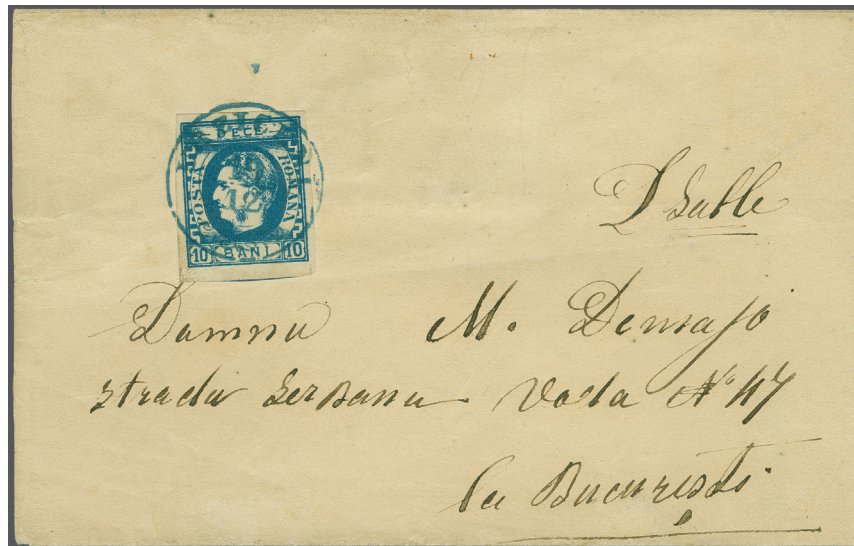 DECE
POSTA ROMANA
19
12
10 BANI 10
Damnu M. Demajo
strada Serbanu Voda No 47
la Bucureşti